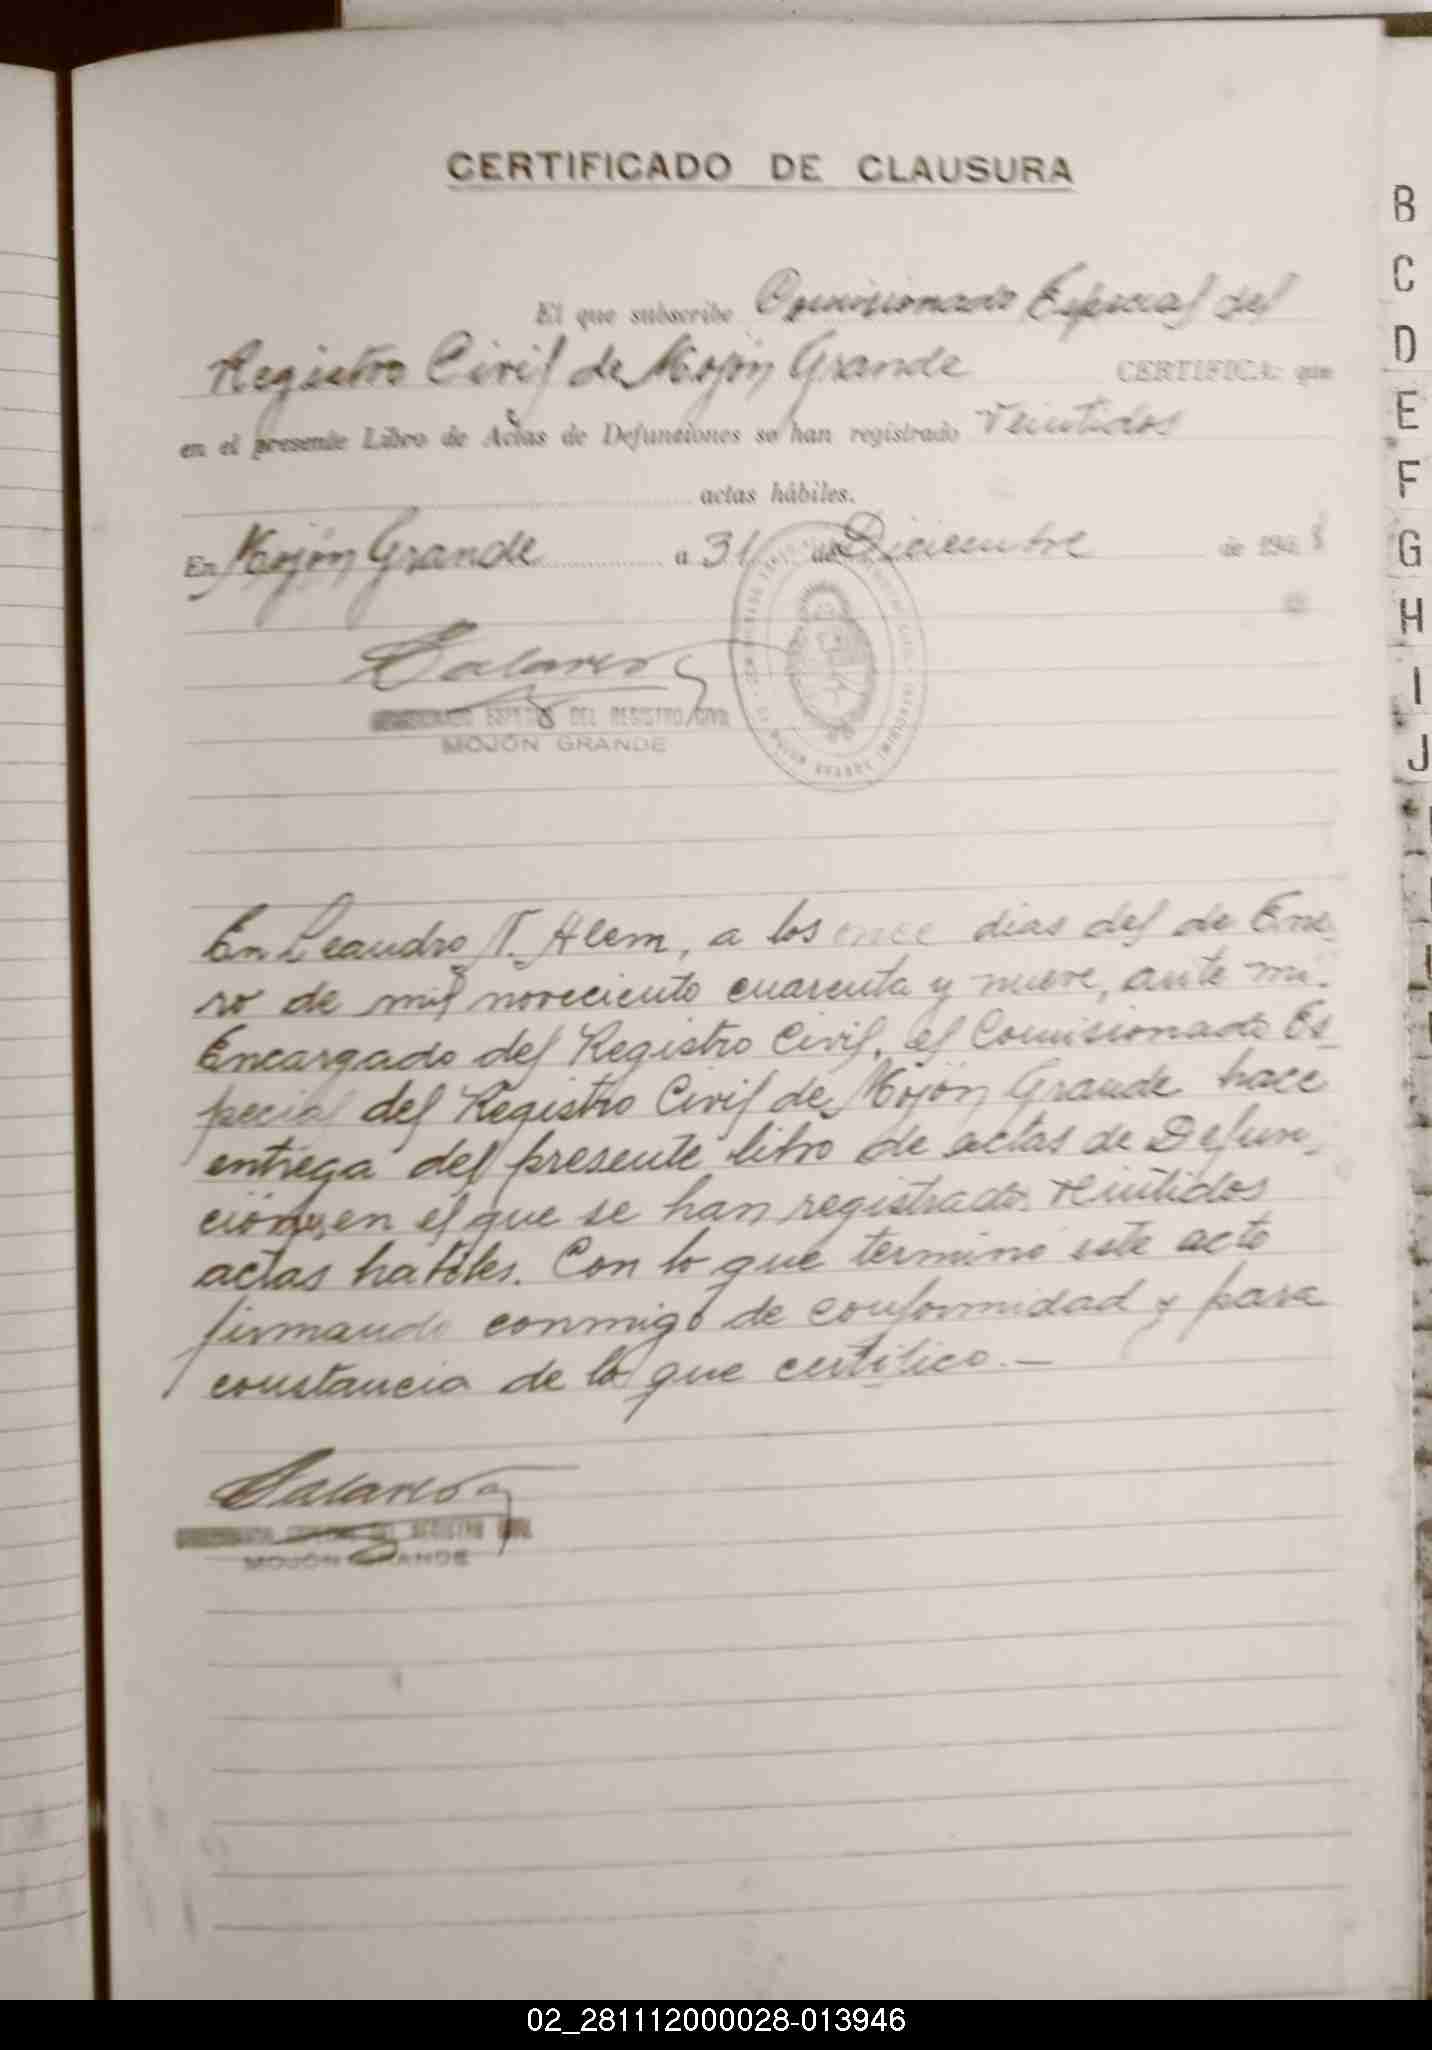 CERTIFICADO DE CLAUSURA
El que subscribe Comisionado Especial del
Registro Civil de Mojón Grande CERTIFICA: que
en el presente Libro de Actas de Defunciones se han registrado veintidos
actas hábiles.
En Mojón Grande a 31 de Diciembre de 1948
ESPECIAL DEL REGISTRO CIVIL
MOJÓN GRANDE
En Leandro N. Alem, a los once dias del de Ene
ro de mil noveciento cuarenta y nueve, ante mi.
Encargado del Registro Civil, el Comisionado Es
pecial del Registro Civil de Mojón Grande hace
entrega del presente libro de actas de Defun
ciones, en el que se han registrado veintidos
actas habiles. Con lo que terminó este acto
firmando conmigo de conformidad y para
constancia de lo que certifico. —
DEL REGISTRO CIVIL
MOJÓN GRANDE
B
C
D
E
F
G
H
I
J
02_281112000028-013946